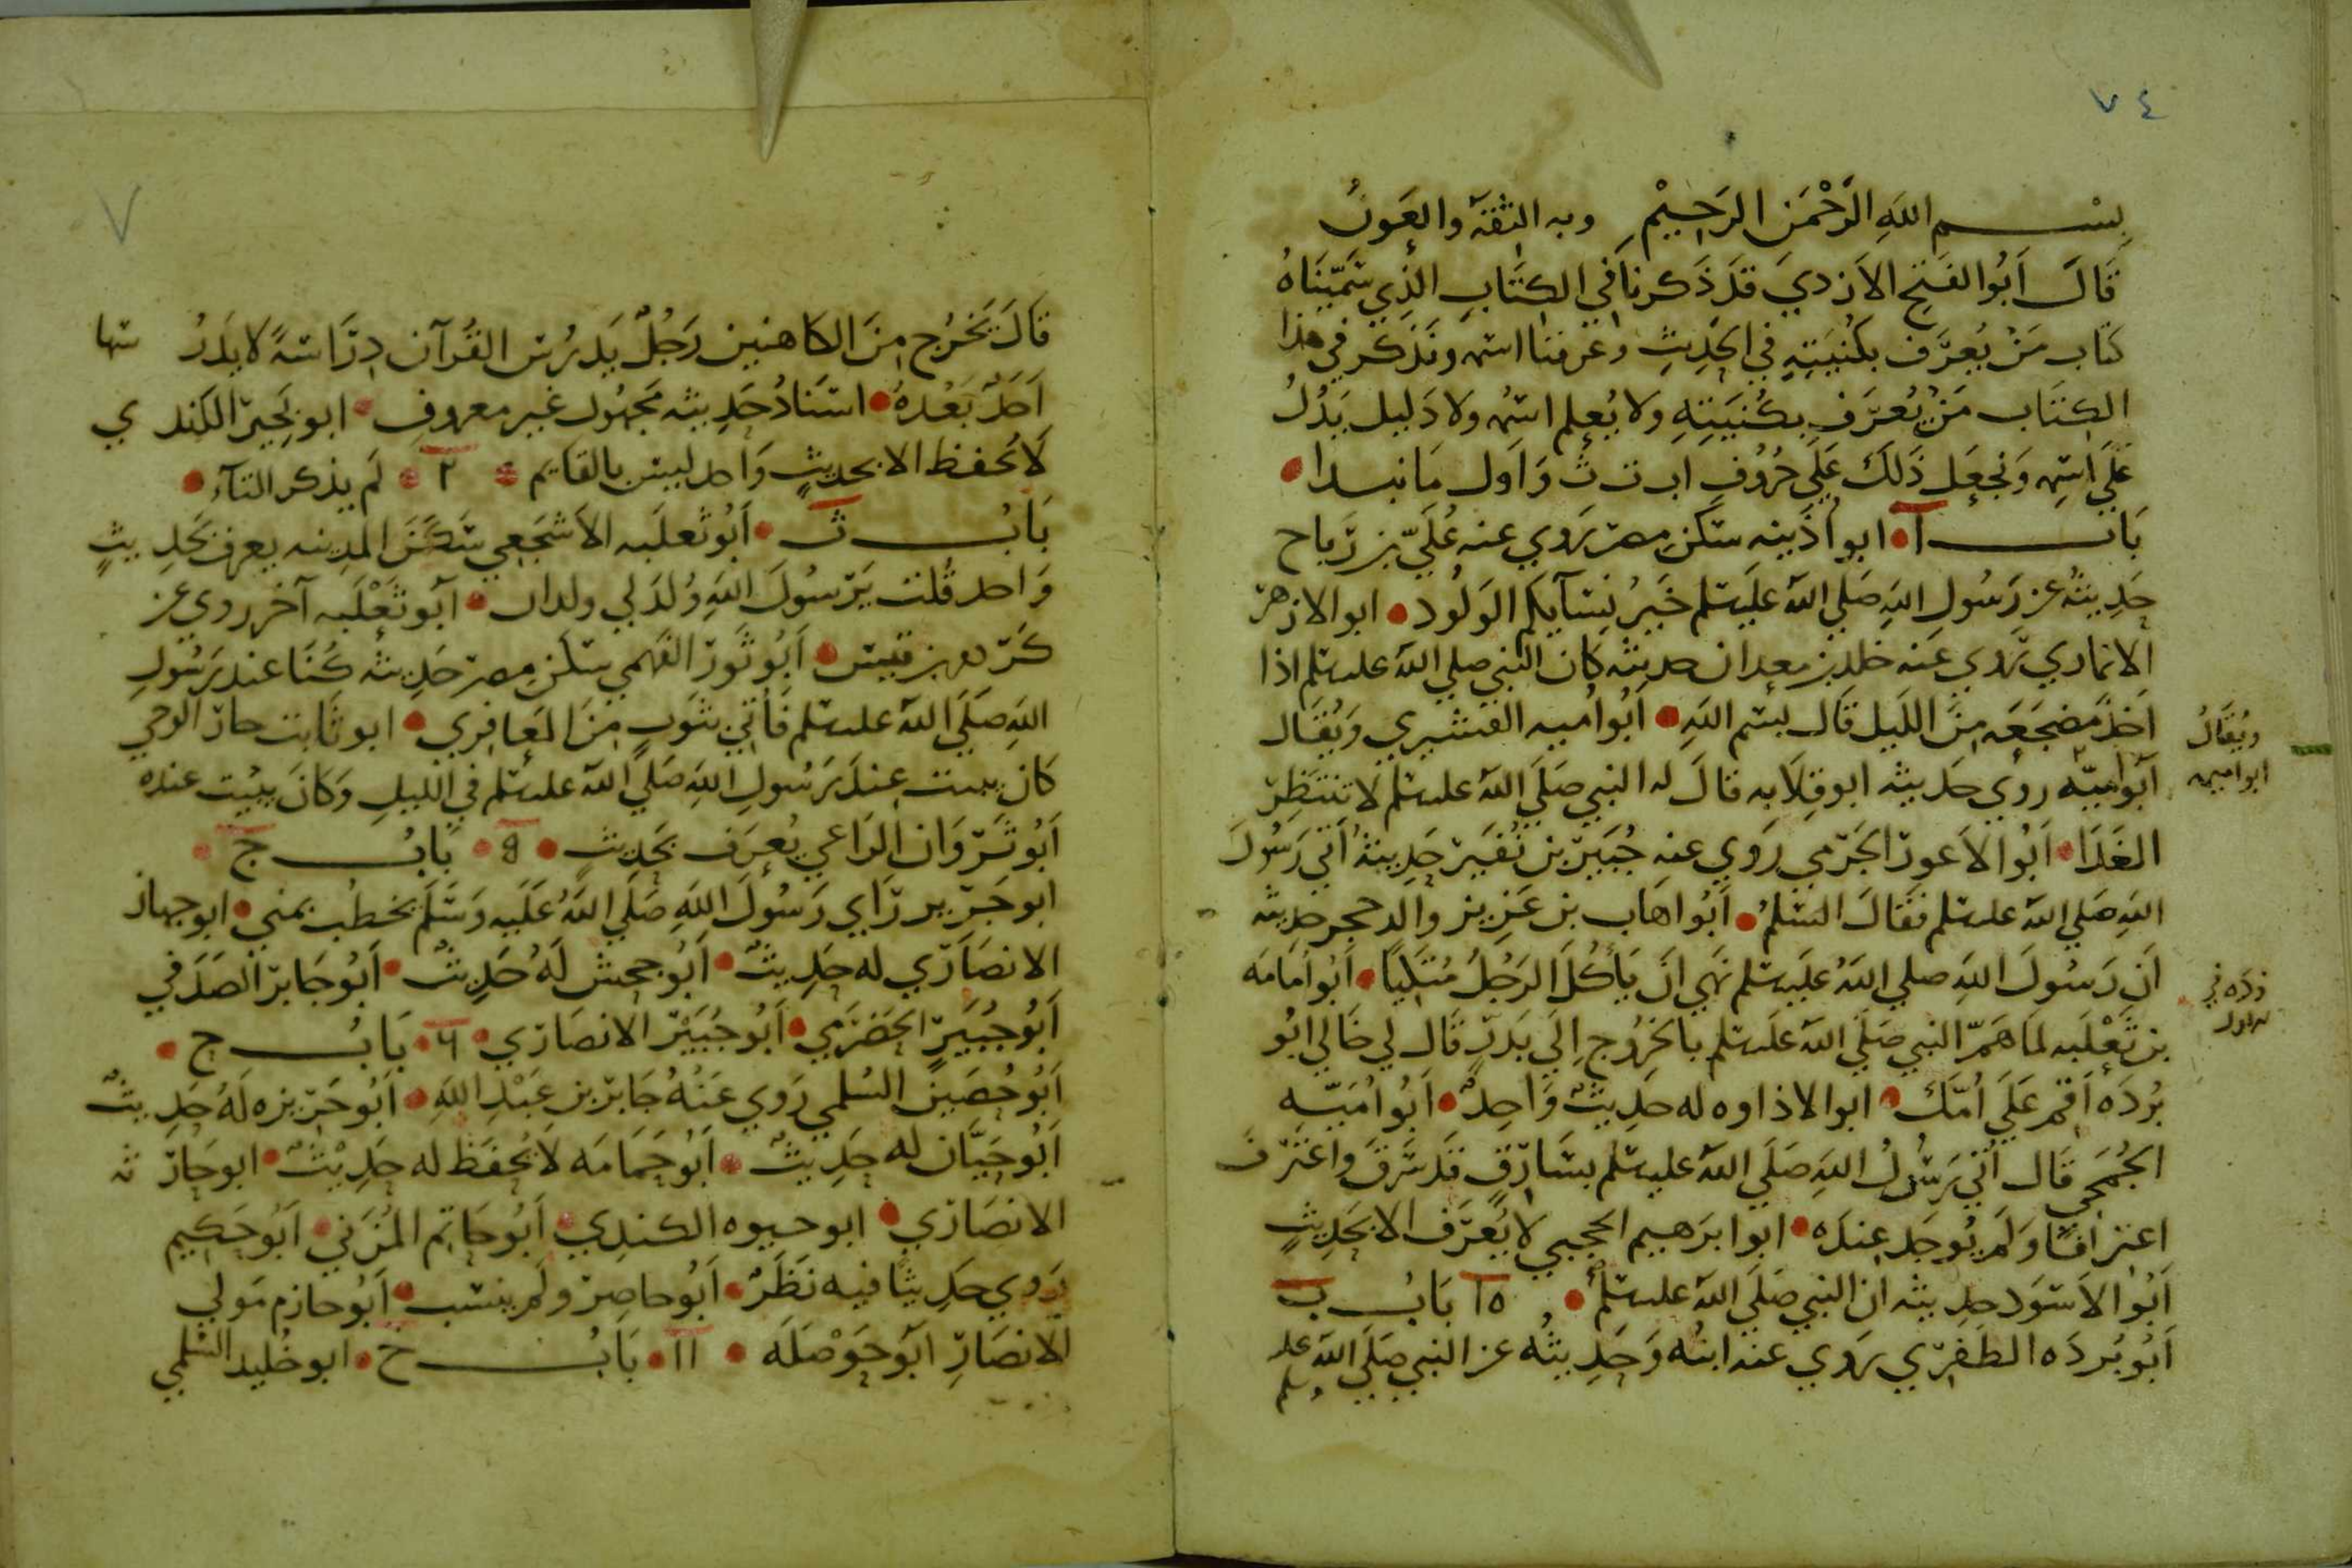 ٧٤
بسم الله الرحمن الرحيم وبه الثقة والعون
قَالَ أَبُو الفتح الأزدي قد ذكرنا في الكتاب الذي سَمّيناهُ
كتاب مَنْ يُعرَف بكنيَتِهِ في الحديث وعرفنا اسمه ونذكر في هذا
الكتاب مَنْ يُعرَف بكُنيَتِهِ ولا يُعلم اسمُه ولا دَليل يَدُلُ
عَلَى اسمِه ونجعَل ذَلكَ عَلَى حُرُوفِ اب ت ث وَأول مَا نبدا
بَاب آ ابو أُذَينه سَكَن مصر رَوي عنه عُلَيّ بن رَبَاح
حَديثهُ عن رَسُولِ اللهِ صَلى الله عَليه سلم خَيرُ نسَآيكم الوَلُود ابو الازهر
الانماري رَوي عَنه خلد بن معدان حديثه كان النبي صلى الله عليه سلم اذا
أخذ مَضجَعَه مِنَ اللَيل قَال بسم الله أَبُو أميه القشيري وَيُقَال
ويُقَالُ
ابو اميمه
أبو أميّه روي حديثه ابو قِلَابه قالَ له النبي صَلَى الله عليه سلم لا تنتَظِر
الغَدَا أَبُو الاَعور الجَرمي رَوي عنه جُبَير بن نُفَير حَديثهُ أتي رَسُولَ
الله صَلى الله عليه سلم فقَالَ السَلمُ أَبُو اهَاب بن عَزِيز والد حجر حديثه
أن رَسُولَ اللهِ صلى اللهُ عَليه سلم نهي انَ يَأكُلَ الرَجُلُ مُتكيًا أَبُو أمَامَه
بن ثَعْلَبه لمَا هَمّ النبي صَلَى الله عَليه سلم بالخرُوج إلَي بَدرٍ قَال لي خَالي ابُو
بُردَه أقم عَلَى أمّكَ ابو الاذاوه له حَديثٌ وَاحِدٌ أَبُو أُمَيّه
الجُمَحي قَال أُتي رَسُولُ اللهِ صَلَى الله عليه سلم بسَارقٍ قَد سَرَقَ واعترَف
اعترافًا وَلَم يُوجَد عِندَه ابو ابرَهيم الحجبي لا يُعَرف الا بحَديثٍ
أَبُو الأَسوَد حديثه ان النبي صَلَى الله عليه سلم ١٥ بَابُ ب
أَبُو بُردَه الظَفَري رَوي عنه ابنُه وَحَديثُه عن النبي صَلَى الله عليه وسلم
٧
قَالَ يَخرُج مِنَ الكاهنين رَجُلٌ يَدرُس القُرآن دِرَاسَةً لا يدرُسها
أَحَدٌ بَعْدهُ اسنادُ حَديثه مَجهُول غير معروف ابو بُجَير الكندي
لَا يَحفظ الا بحديثٍ وَاحد ليس بالقايم ٢ لَم يذكر التآء
بَابُ ث أَبُو ثعلَبه الأشجَعي سَكَنَ المدينه يعرف بحَديثٍ
وَاحد قُلت يَرسُولَ اللهِ وُلدَ لي ولدان أبو ثَعْلَبه آخر روي عن
كردم بن قيس أَبُو ثَور الفَهمي سكَن مِصر حَديثه كُنَا عند رَسُولِ
اللهِ صَلَى الله عليه سلم فَأتي بثوبٍ مِنَ المَعَافِري ابو ثَابت
كانَ يبيت عِندَ رَسُولِ اللهِ صَلَى الله عليه سلم في الليلِ وَكانَ يبيُت عنده
أَبُو ثَروَان الرَاعي يُعرَف بحَديث ٥ بَابُ ج
ابو جَرير رَاي رَسُولَ اللهِ صَلَى اللهُ عَلَيه وَسَلَم يخطب بمنى ابو جهاد
الانصَاري له حَديثٌ أَبُو جحش لَهُ حَديثٌ أَبُو جَابر الصَدَفي
أَبُو جُبَيرٍ الحَضرَمي أَبُو جُبَيْر الانصَاري ٦ بَابُ ح
أَبُو حُصَين السُلمي رَوي عَنهُ جَابر بن عَبْدِ اللهِ أَبُو حَريزه لَهُ حَديثٌ
أَبُو حَيَّان له حَديثٌ أَبُو حَمَامَه لا يُحفَظ له حَديْثٌ ابو حَارثه
الانصَاري ابو حيوه الكندِي أَبُو حَاتم المُزَني أَبُو حَكيم
رَوي حَديثًا فيه نَظَرٌ أَبُو حاصِر ولم ينسب أَبُو حازم مَولي
الانصَارِ أبو حَوْصَلَه ١١ بَابُ خ ابو خُليد السُلمي